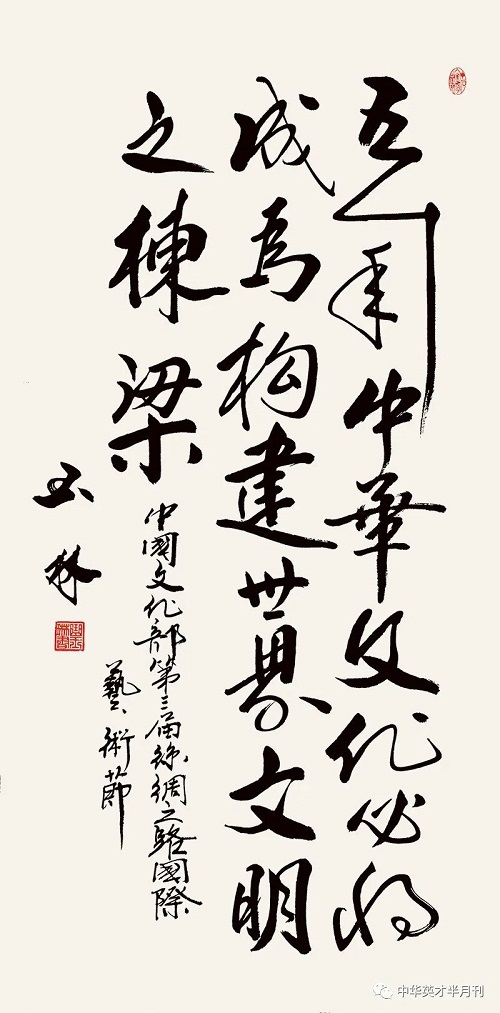 五千年中華文化必将
成為构建世界文明
之棟梁
中國文化部第三届絲綢之路國際
藝術節
玉林
中华英才半月刊